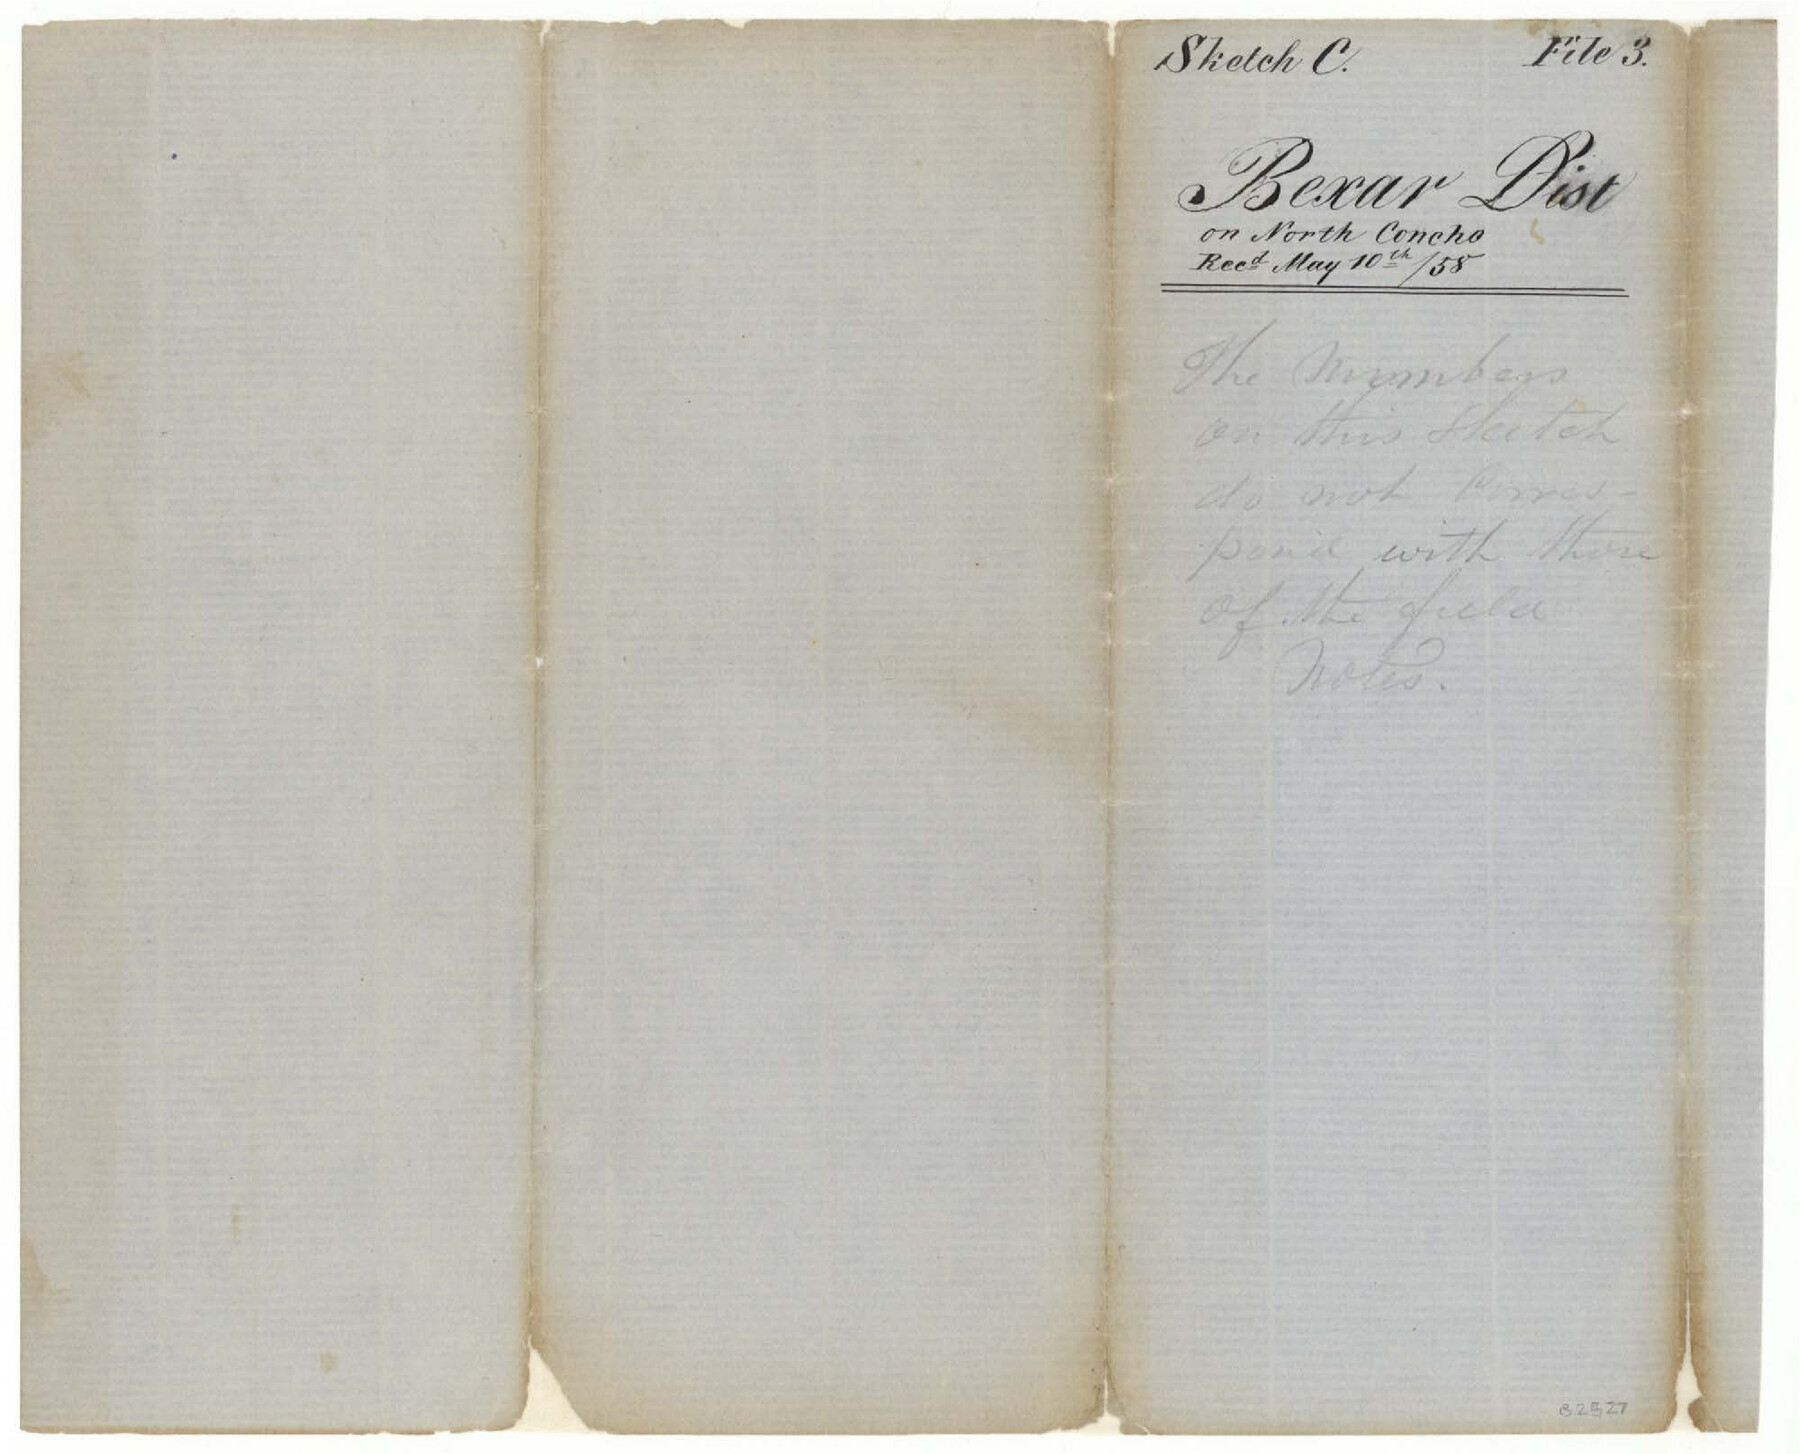 Sketch C. File 3.
Bexar Dist
on North Concho
Recd May 10th /58
The Numbers
on this Sketch
do not Corres-
pond with those
of the field
Notes.